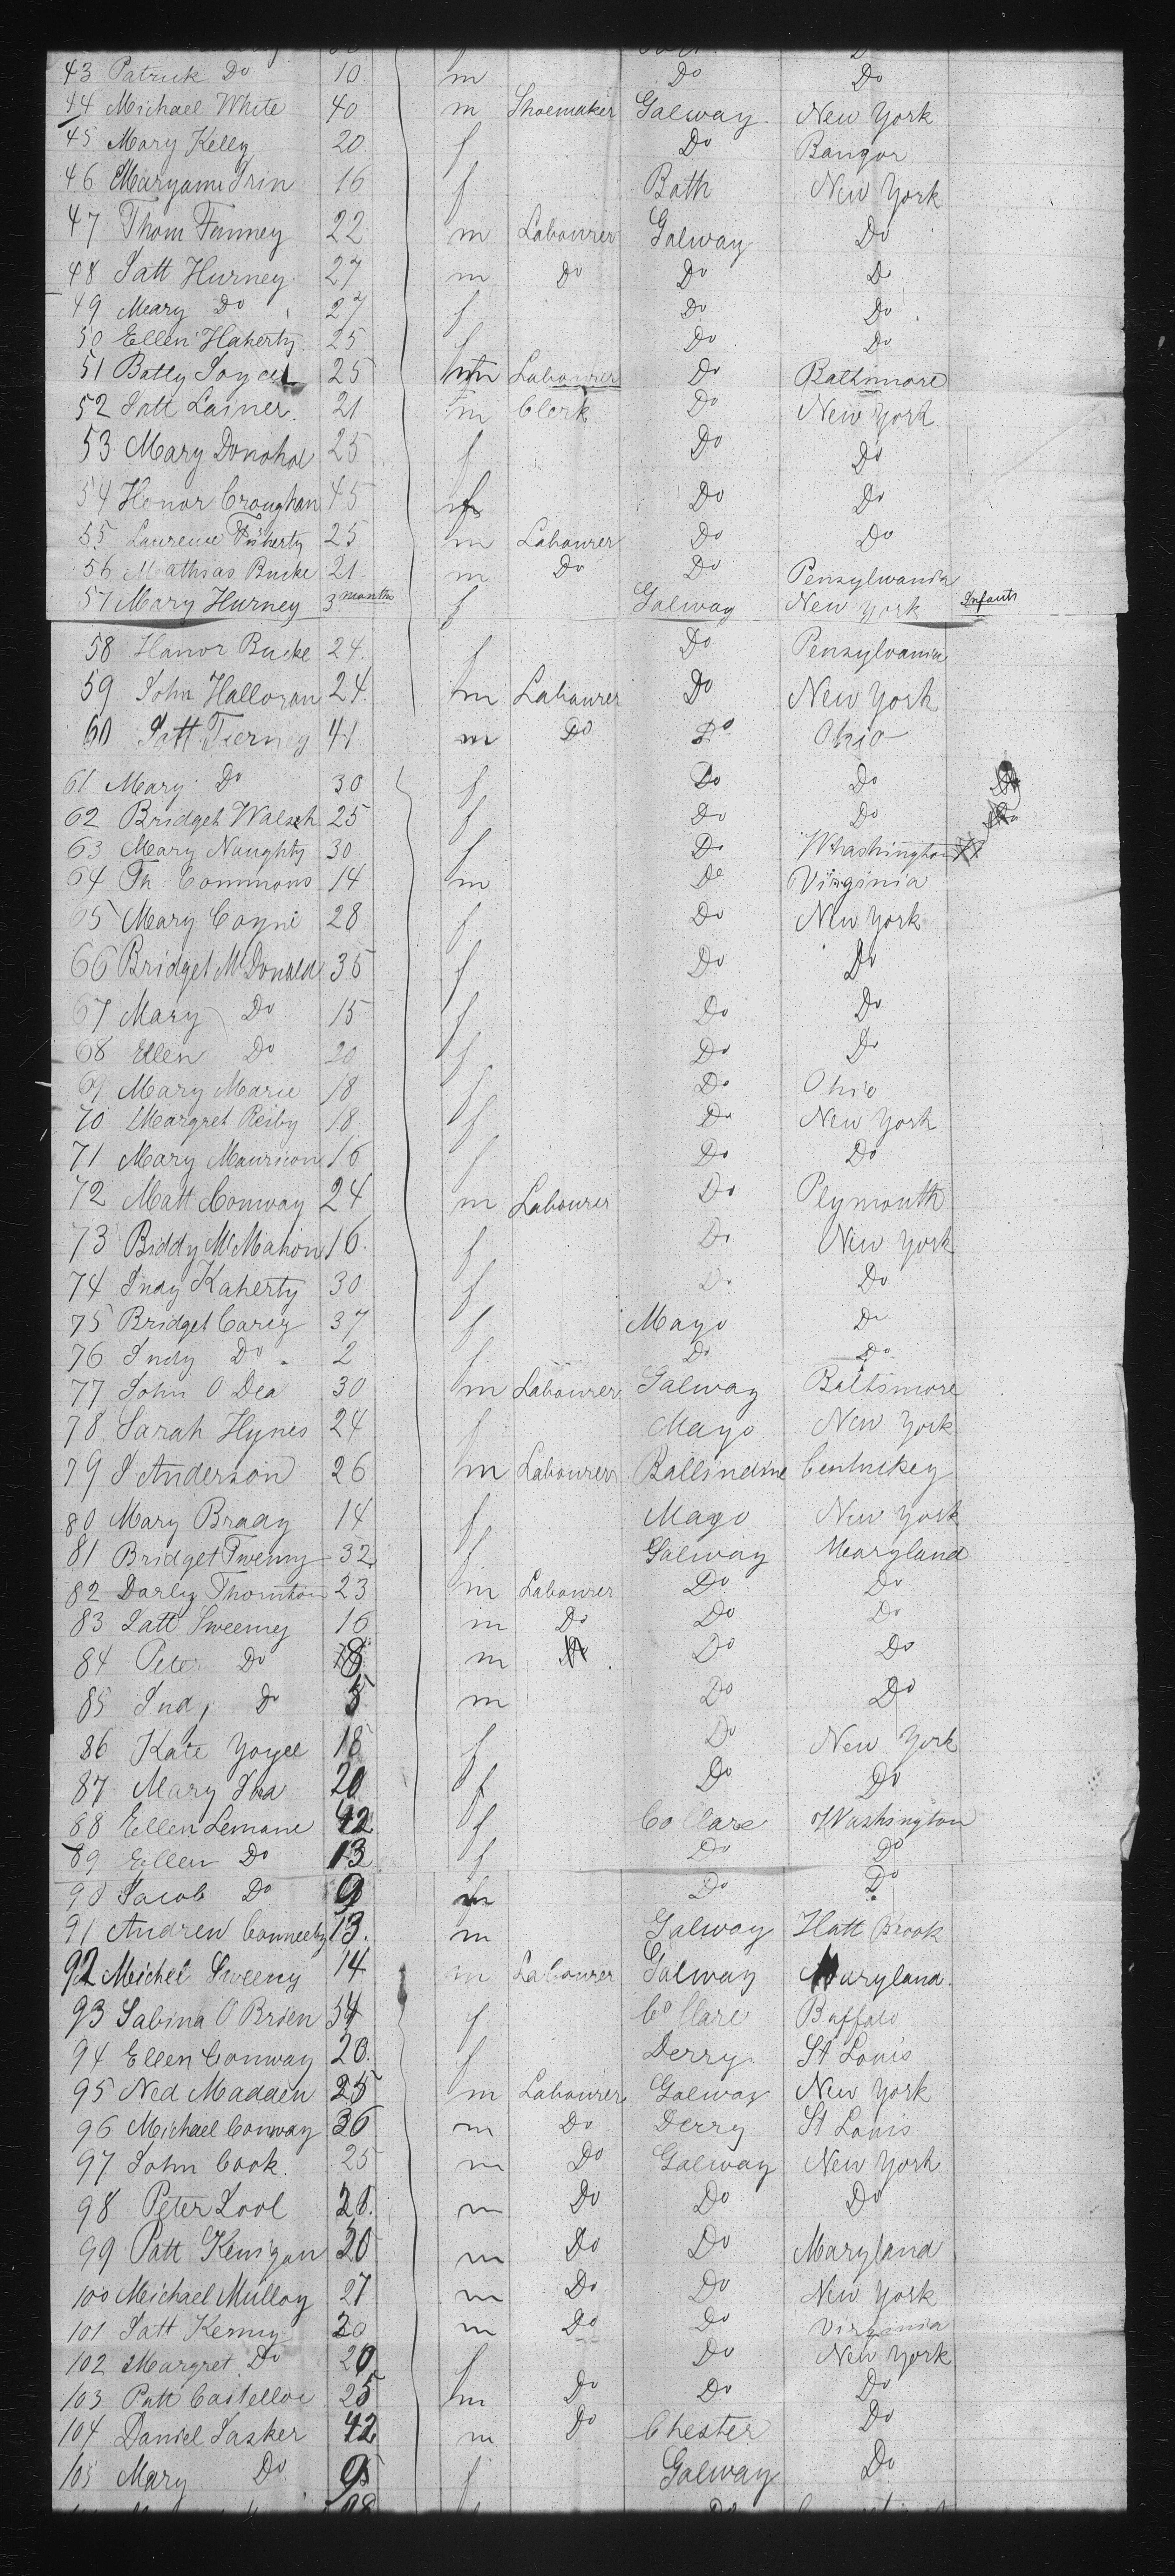 43 Patrick Do 10 m Do Do
44 Michael White 40 m Shoemaker Galway New York
45 Mary Kelly 20 f Do Bangor
46 Maryann 16 f Bath New York
47 Thom Finney 22 m Labourer Galway Do
48 Patt Hurney 27 m Do Do Do
49 Mary Do 27 f Do Do
50 Ellen Flaherty 25 f Do Do
51 Batty Joyce 25 m Labourer Do Baltimore
52 Patt Lainer 21 m Clerk Do New York
53 Mary Donohoe 25 f Do Do
54 Honor Croughan 45 f Do Do
55 Laurence 25 m Labourer Do Do
56 Mathias Burke 21 m Do Do Pensylwania
57 Mary Hurney 3 months f Galway New York Infants
58 Honor Burke 24 f Do Pensylvania
59 John Halloran 24 m Labourer Do New York
60 Patt Tierney 41 m Do Do Ohio
61 Mary Do 30 f Do Do
62 Bridget Walsh 25 f Do Do
63 Mary Naughty 30 f Do Whashington
64 Th Commons 14 m Do Virginia
65 Mary Coyne 28 f Do New York
66 Bridget McDonald 35 f Do Do
67 Mary Do 15 f Do Do
68 Ellen Do 20 f Do Do
69 Mary Marie 18 f Do Ohio
70 Margret Reiby 18 f Do New York
71 Mary 16 f Do Do
72 Matt Conway 24 m Labourer Do Plymouth
73 Biddy McMahon 16 f Do New York
74 Judy Kaherty 30 f Do Do
75 Bridget Carey 37 f Mayo Do
76 Judy Do 2 f Do Do
77 John O Dea 30 m Labourer Galway Baltimore
78 Sarah Hynes 24 f Mayo New York
79 J Anderson 26 m Labourer Ballindine Centuckey
80 Mary Brady 14 f Mayo New York
81 Bridget 32 f Galway Maryland
82 Darby Thornton 23 m Labourer Do Do
83 Patt Sweeney 16 m Do Do Do
84 Peter Do 8 m Do Do
85 Judy Do 5 m Do Do
86 Kate Yoyce 18 f Do New York
87 Mary 20 f Do Do
88 Ellen Lemane 42 f Co Clare Washington
89 Ellen Do 13 f Do Do
90 Jacob Do 9 m Do Do
91 Andrew Conneely 13 m Galway Hatt Brook
92 Meichel Sweeny 14 m Labourer Galway Maryland
93 Sabina O Brien 54 f Co Clare Buffalo
94 Ellen Conway 20 f Derry St Louis
95 Ned Madden 25 m Labourer Galway New York
96 Michael Conway 36 m Do Derry St Louis
97 John Cook 25 m Do Galway New York
98 Peter Lool 20 m Do Do Do
99 Patt Kenigan 20 m Do Do Maryland
100 Michael Mulloy 27 m Do Do New York
101 Patt Kenny 20 m Do Do Virginia
102 Margret Do 20 f Do New York
103 Patt Castelloe 25 m Do Do Do
104 Daniel Tasker 42 m Do Chester Do
105 Mary Do 9 f Galway Do